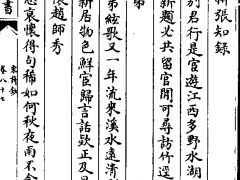 張知錄
別君行是宦遊江西多野水湖
新題必共留官閒可尋訪竹
弟
弟絃歌又一年流來溪水遠清
新居物色鮮宦歸言話欵正及
懷趙師秀
愁哀懷得句稀如何秋夜雨不念
書
宋詩鈔
卷八十七